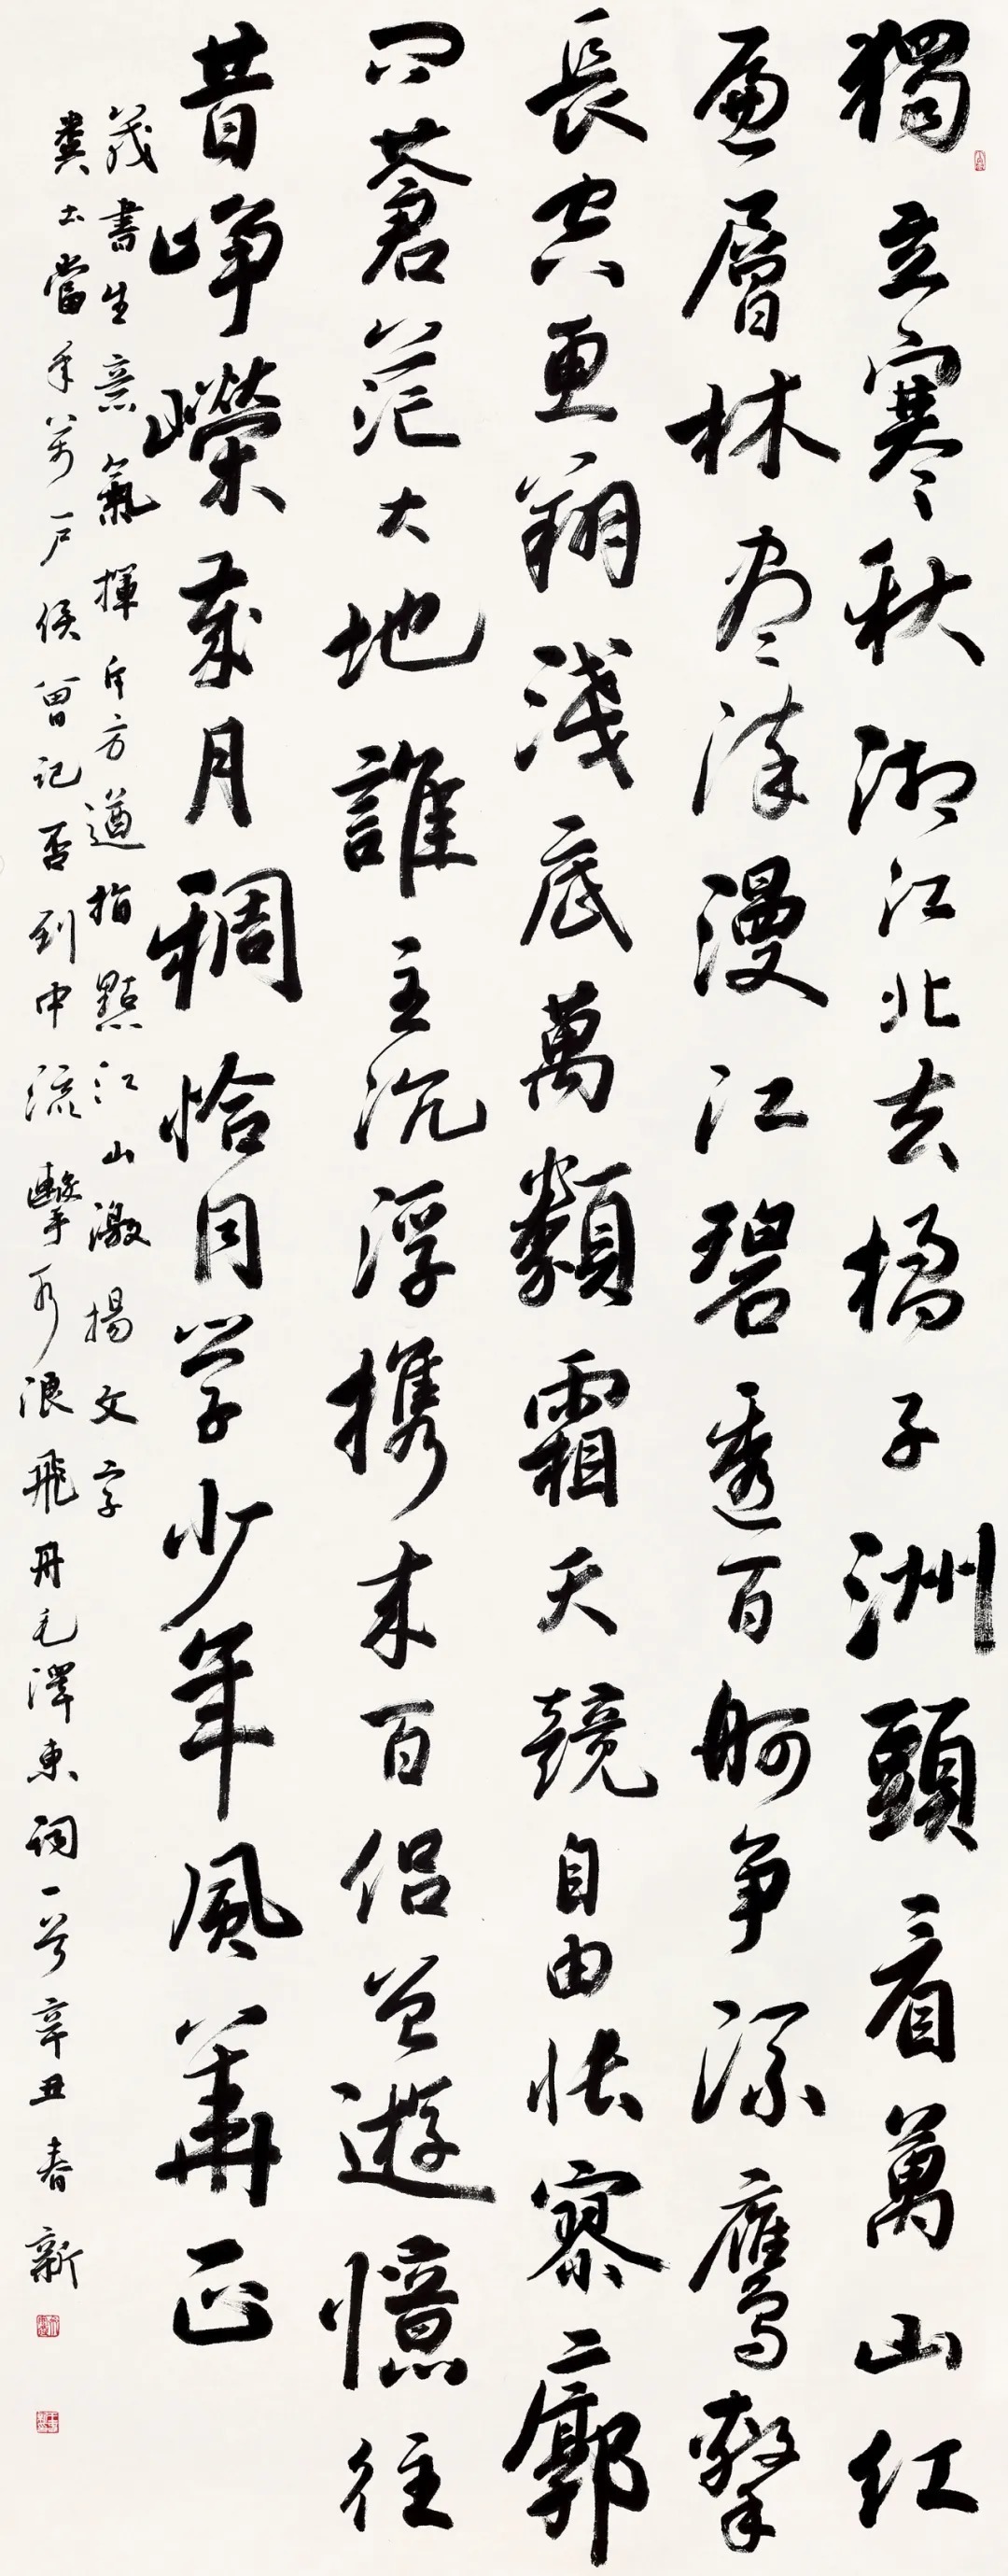 獨立寒秋湘江北去橘子洲頭看萬山紅
遍層林盡染漫江碧透百舸争流鷹擊
長空魚翔淺底萬類霜天競自由悵寥廓
問蒼茫大地誰主沉浮携来百侣曾遊憶往
昔崢嶸歲月稠恰同学少年風華正
茂書生意氣揮斥方遒指點江山激揚文字
糞土當年萬户侯曾記否到中流擊水浪飛舟毛澤東詞一首辛丑春新